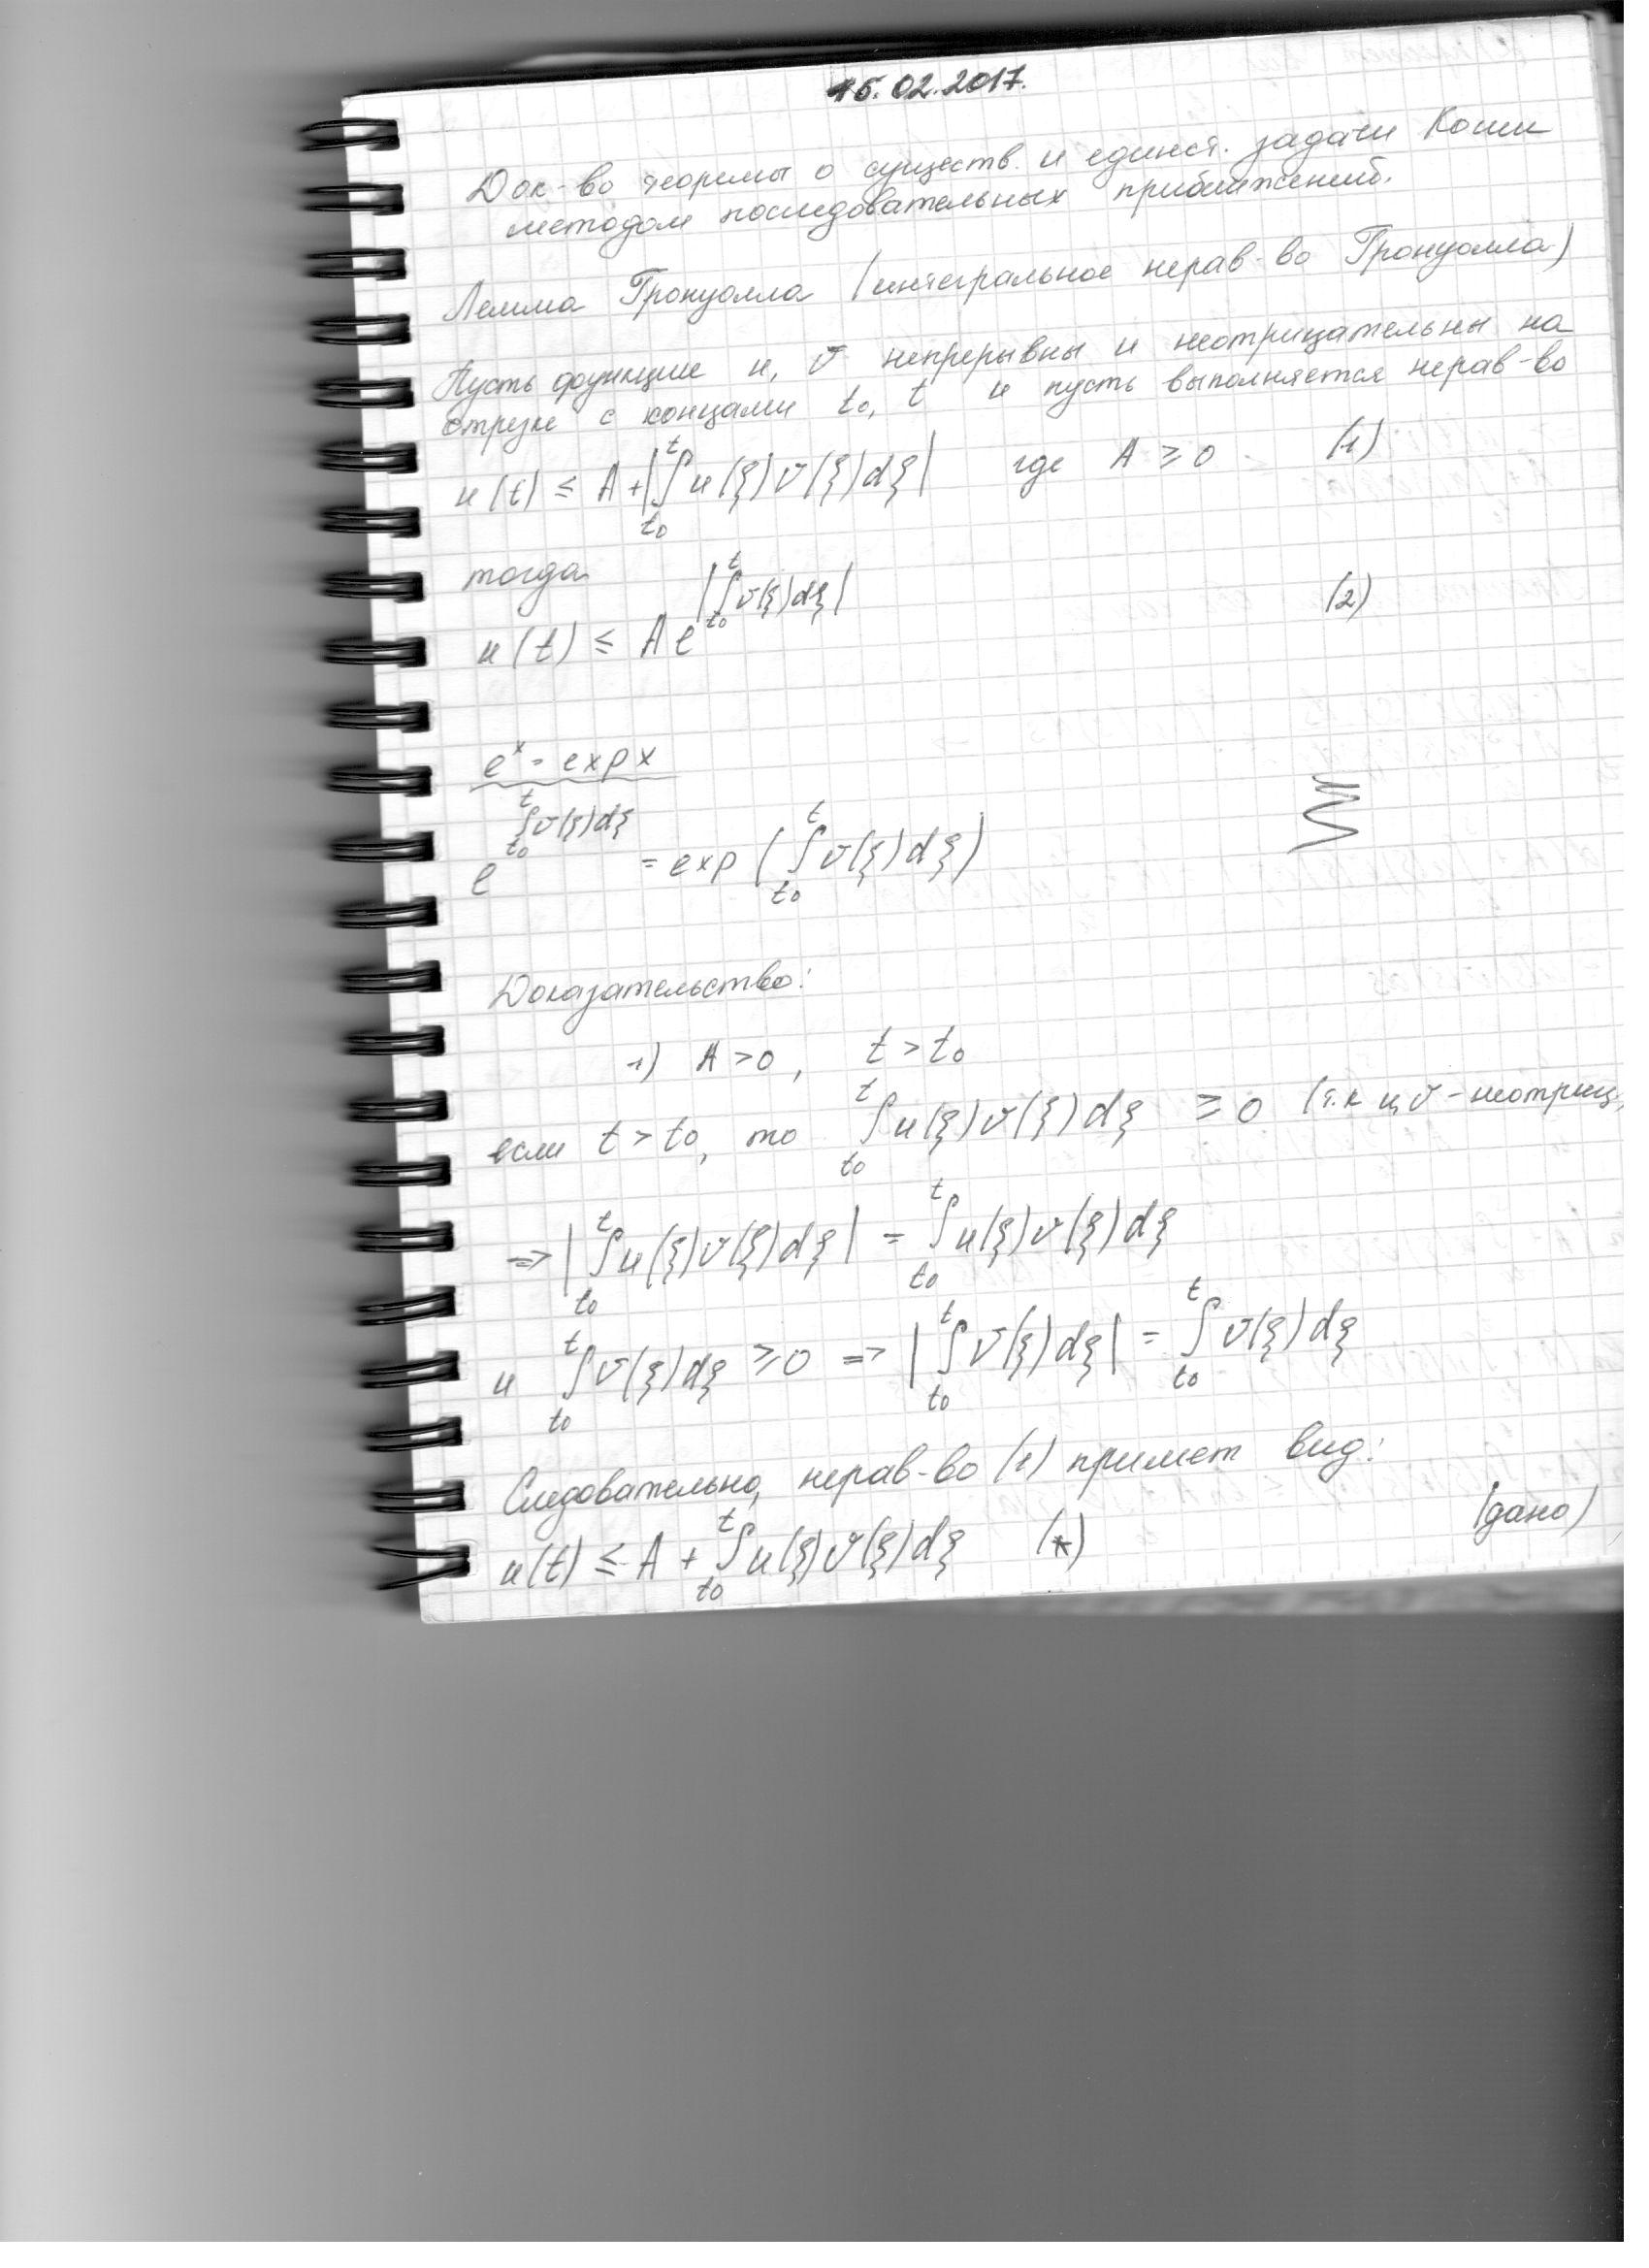 15.02.2017.
Док-во теоремы о существ. и единст. задачи Коши
методом последовательных приближений.
Лемма Гронуолла (интегральное нерав-во Гронуолла)
Пусть функции u, v непрерывны и неотрицательны на
отрезке с концами t₀, t и пусть выполняется нерав-во
u(t) ≤ A + |∫_{t₀}^{t} u(ξ)v(ξ)dξ| где A ≥ 0 (1)
тогда
u(t) ≤ A e^{|∫_{t₀}^{t} v(ξ)dξ|} (2)
eˣ = exp x
e^{∫_{t₀}^{t} v(ξ)dξ} = exp (∫_{t₀}^{t} v(ξ)dξ)
Доказательство:
1) A > 0, t > t₀
если t > t₀, то ∫_{t₀}^{t} u(ξ)v(ξ)dξ ≥ 0 (т.к u, v - неотриц.
=> |∫_{t₀}^{t} u(ξ)v(ξ)dξ| = ∫_{t₀}^{t} u(ξ)v(ξ)dξ
и ∫_{t₀}^{t} v(ξ)dξ ≥ 0 => |∫_{t₀}^{t} v(ξ)dξ| = ∫_{t₀}^{t} v(ξ)dξ
Следовательно, нерав-во (1) примет вид:
u(t) ≤ A + ∫_{t₀}^{t} u(ξ)v(ξ)dξ (*) (дано)